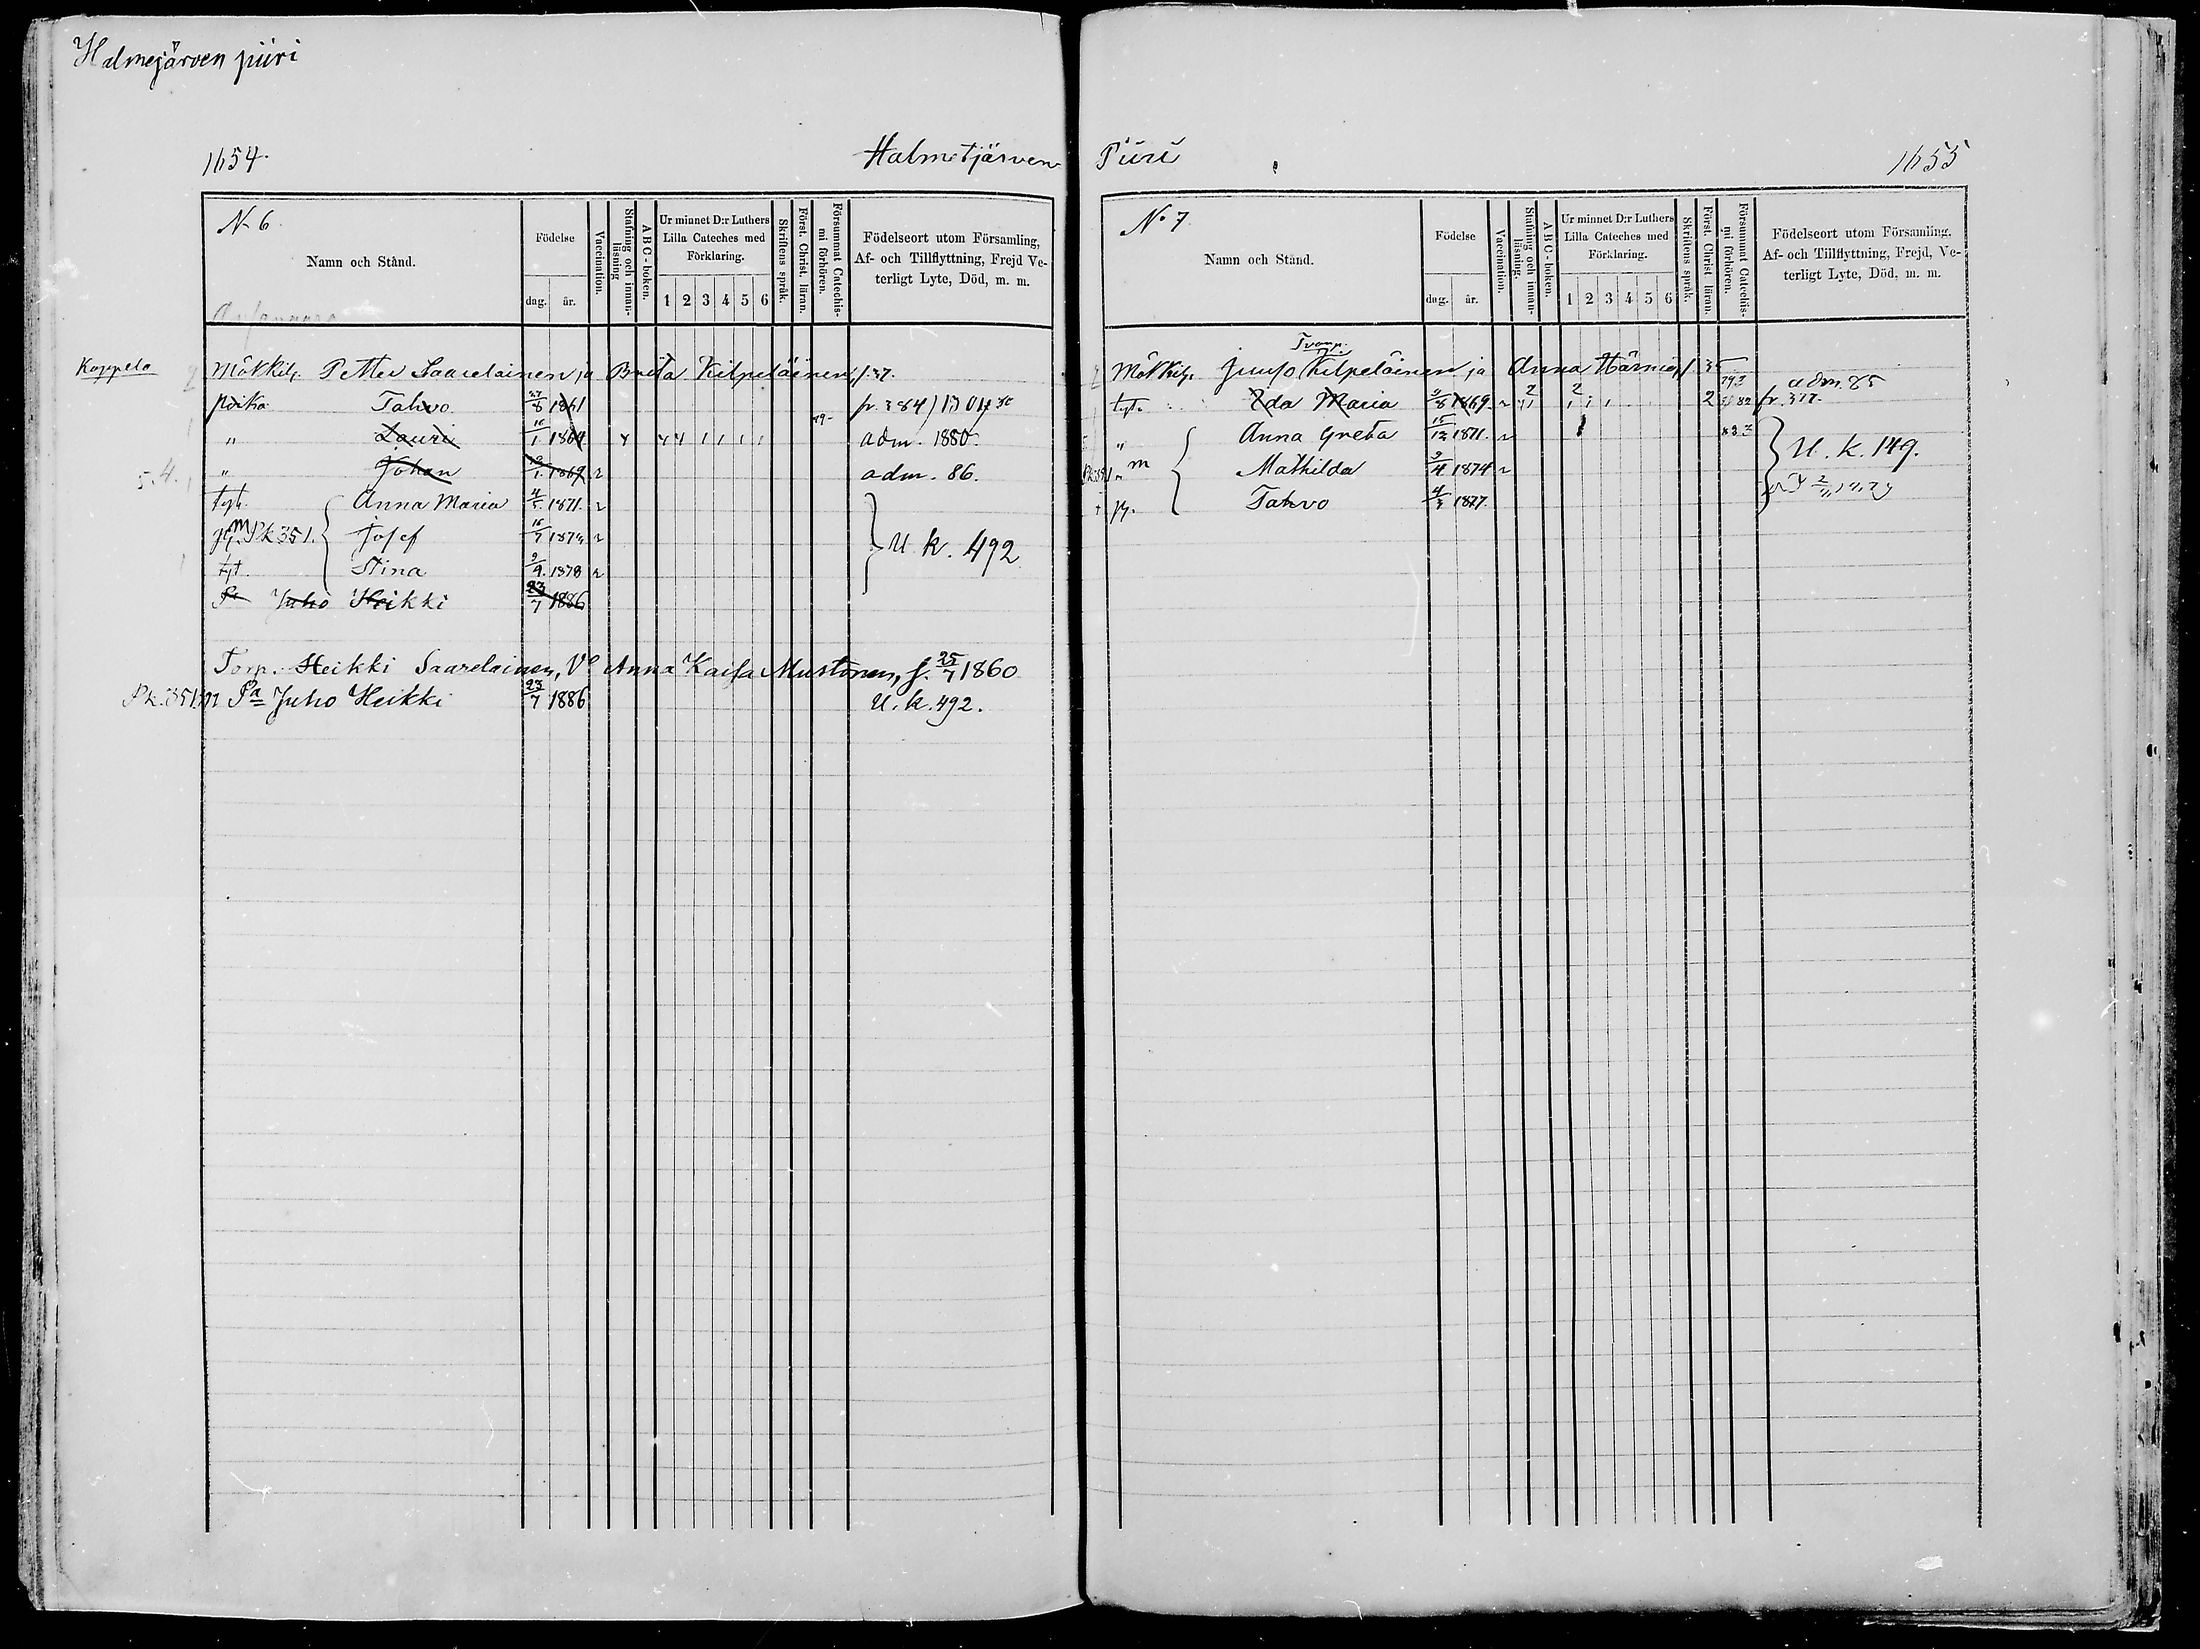 Halmejärven piiri
1654.
Halmetjärven
N 6.
Namn och Stånd.
Födelse
dag. år.
Vaccination.
Stafning och innan-läsning
ABC-boken.
Ur minnet D:r Luthers Lilla Cateches med Förklaring.
1 2 3 4 5 6
Skriftens språk.
Först. Christ. läran.
Försummat Catechis-mi förhören.
Födelseort utom Församling, Af- och Tillflyttning, Frejd Ve-terligt Lyte, Död, m. m.
Koppelo
Mökkil. Petter Saarelainen ja Brita Kilpeläinen, f. 37.
poika Tahvo 27/8 1861 fr. 384
" Lauri 16/1 1864 4 4 4 1 1 1 1 adm. 1880.
5.4. " Johan 1867 r adm. 86.
tyt. Anna Maria 4/5 1871. r
m Pk 351. Josef 16/7 1874 r
U. k. 492
tyt. Stina 9/9. 1878 r
Pa Juho Heikki 23/7 1886
Torp. Heikki Saarelainen, Vo Anna Kaisa Mustonen, f. 25/7 1860
Pk. 351 m Pa Juho Heikki 23/7 1886 U. k. 492.
Piiri
1655
No 7
Namn och Stånd.
Födelse
dag. år.
Vaccination.
Stafning och innan-läsning.
ABC-boken.
Ur minnet D:r Luthers Lilla Cateches med Förklaring.
1 2 3 4 5 6
Skriftens språk.
Först. Christ läran.
Försummat Catechis-mi förhören.
Födelseort utom Församling, Af- och Tillflyttning, Frejd, Ve-terligt Lyte, Död, m. m.
Mökkil. Juuso Kilpeläinen ja Anna Härmä, f. 35
adm. 85
tyt. Eda Maria 4/8 1869. r 2 2 2 82 fr. 377.
" Anna Greta 15/12 1871. r 1 83 3
U. k. 149.
m Mathilda 9/4 1874 r
pj. Tahvo 4/3 1877.